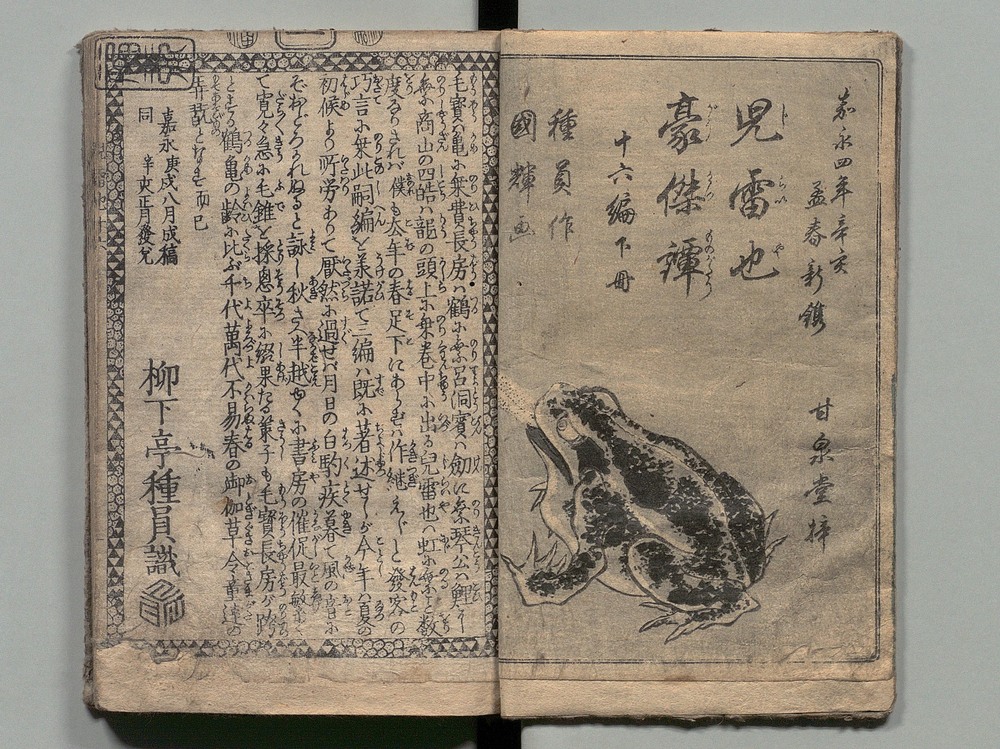 嘉永四年辛亥
孟春新鐫 甘泉堂梓
児雷也
豪傑譚
十六編下冊
種員作
國輝画
毛寶ハ亀に乗費長房ハ鶴に乗呂洞賓ハ劔に乗琴ハ鯉に
商山の四皓ハ龍の頭上に乗巻中に出る児雷也ハ虹に乗と数
度るされバ僕も今年の春足下にあらずハ作継えじと發客の
巧言に乗此嗣編を諾て三編ハ既に著述せしが今年ハ夏の
初候より所労ありて厭然に過せバ月日の白駒疾暮て風の音に
ぞおどろかれぬると詠し秋さへ半越ゆくに書房の催促最
て寛々急に毛錐を採怱卒に綴果たる菓子も毛寶長房が跨
とする鶴亀の齢に比ぶ千代萬代不易春の御伽草今童達の
となす而已
嘉永庚戌八月成稿
同 辛亥正月發兌
柳下亭種員識